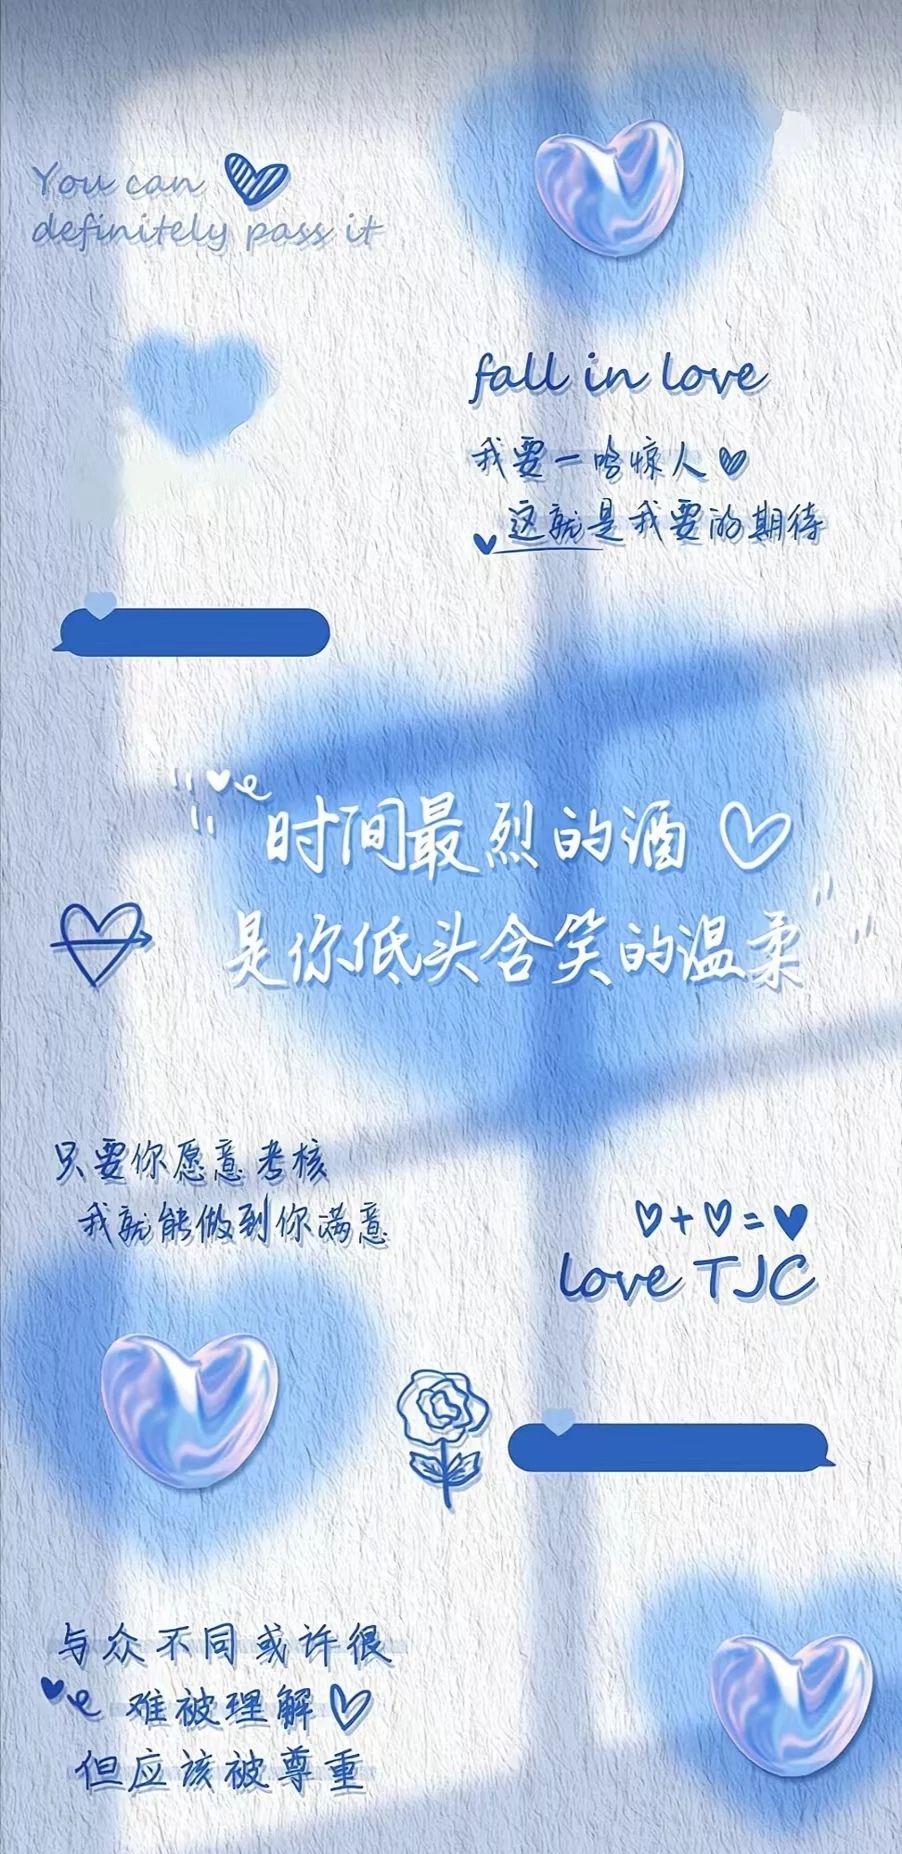 You can
definitely pass it
fall in love
我要一啥惊人
这就是我要的期待
时间最烈的酒
是你低头含笑的温柔
只要你愿意考核
我就能做到你满意
love TJC
与众不同或许很
难被理解
但应该被尊重